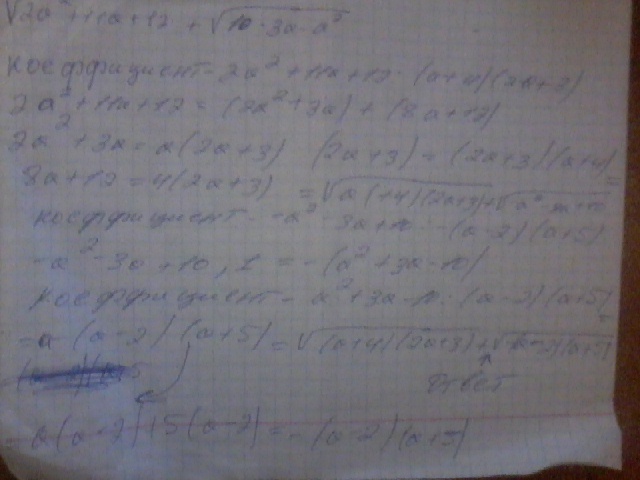 √2a²+11a+12 + √10-3a-a²
коеффициент- 2a²+11a+12 · (a+4)(2a+3)
2a²+11a+12 = (2a²+3a) + (8a+12)
2a²+3a = a(2a+3) (2a+3) = (2a+3)(a+4) =
8a+12 = 4(2a+3) = √a(+4)(2a+3)+√a²-3a+10
коеффициент- -a²-3a+10 - (a-2)(a+5)
-a²-3a+10, 1 = -(a²+3a-10)
коеффициент- a²+3a-10 · (a-2)(a+5) =
=a (a-2)(a+5) = √(a+4)(2a+3)+√(a-2)(a+5)
ответ
= a(a-2)+5(a-2) = -(a-2)(a+5)